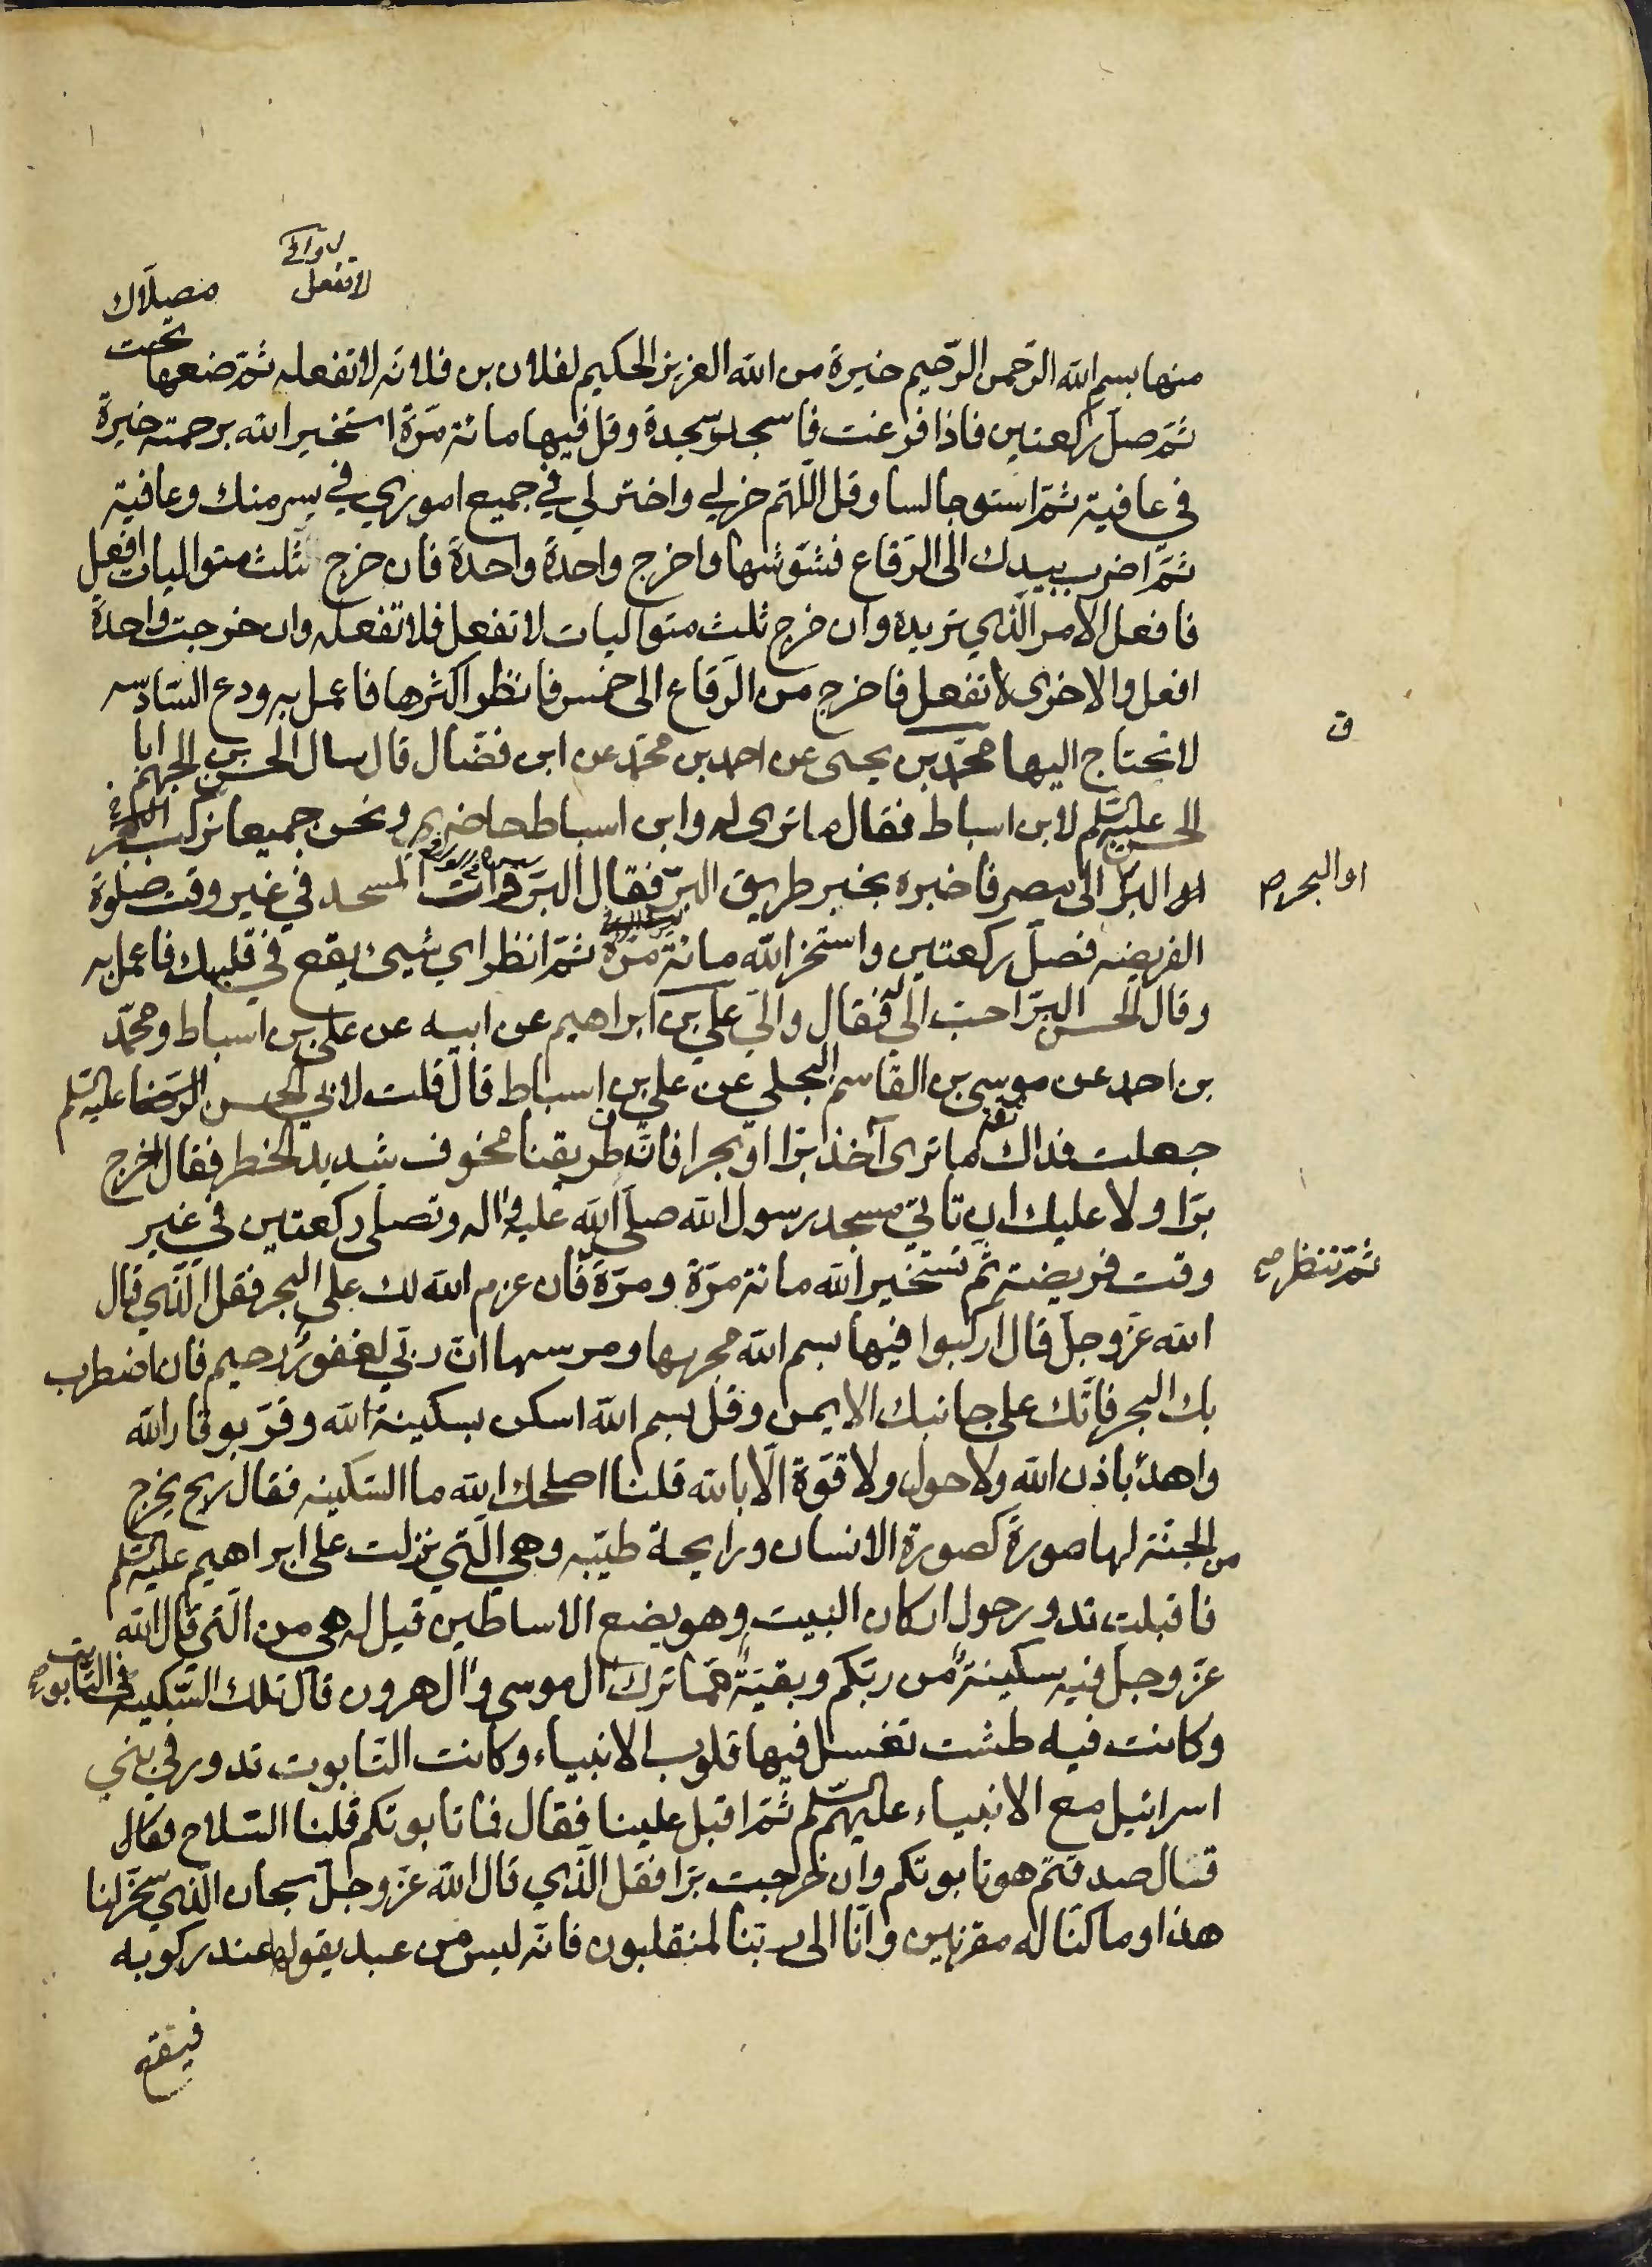 لا تفعل
مصلاك
منها بسم الله الرّحمن الرّحيم خيرة من الله العزيز الحكيم لفلان بن فلانه لا تفعله ثمّ ضعها تحت
ثمّ صلّ ركعتين فاذا فرغت فاسجد سجدة وقل فيها مائة مرّة استخير الله برحمته خيرة
في عافية ثمّ استو جالسا وقل اللّهم خر لي واختر لي في جميع اموري في يسر منك وعافية
ثمّ اضرب بيدك الى الرّقاع فشوّشها واخرج واحدة واحدة فان خرج ثلث متواليات افعل
فافعل الامر الّذي تريده وان خرج ثلث متواليات لا تفعل فلا تفعله وان خرجت واحدة
افعل والاخرى لا تفعل فاخرج من الرّقاع الى خمس فانظر اكثرها فاعمل به ودع السّادسه
لا تحتاج اليها محمّد بن يحيى عن احمد بن محمّد عن ابن فضّال قال سال الحسن بن الجهم ابا
الحسن عليه السّلم لابن اسباط فقال ما ترى له وابن اسباط حاضر ونحن جميعا نركب
او البرّ الى مصر فاخبره بخبر طريق البرّ فقال البرّ وائت المسجد في غير وقت صلوة
الفريضه فصلّ ركعتين واستخر الله مائة مرّة ثمّ انظر اي شيئ يقع في قلبك فاعمل به
وقال الحسن البرّ احبّ اليّ له فقال واليّ علي بن ابراهيم عن ابيه عن علي بن اسباط ومحمّد
بن احمد عن موسى بن القاسم البجلي عن علي بن اسباط قال قلت لابي الحسن الرّضا عليه السّلم
جعلت فداك ما ترى آخذ برّا او بحرا فانّ طريقنا مخوف شديد الخطر فقال اخرج
برّا ولا عليك ان تاتي مسجد رسول الله صلّى الله عليه واله وتصلّى ركعتين في غير
وقت فريضة ثم تستخير الله مائة مرّة ومرّة فان عزم الله لك على البحر فقل الّذي قال
الله عزّ وجلّ قال اركبوا فيها بسم الله مجريها ومرسيها انّ ربّي لغفور رحيم فان اضطرب
بك البحر فاتّك على جانبك الايمن وقل بسم الله اسكن بسكينة الله وقرّ بوقار الله
واهدأ باذن الله ولا حول ولا قوّة الّا بالله قلنا اصلحك الله ما السّكينه فقال ريح يخرج
من الجنّة لها صورة كصورة الانسان ورايحة طيّبه وهي الّتي نزلت على ابراهيم عليه السّلم
فاقبلت تدور حول اركان البيت وهو يضع الاساطين قيل له هي من الّتي قال الله
عزّ وجلّ فيه سكينة من ربّكم وبقيّة ممّا ترك ال موسى وال هرون قال تلك السّكينة في التّابوت
وكانت فيه طشت تغسل فيها قلوب الانبياء وكانت التّابوت تدور في بني
اسرائيل مع الانبياء عليهم السّلم ثمّ اقبل علينا فقال فما تابوتكم قلنا السّلاح فقال
قال صدقتم هو تابوتكم وان خرجت برّا فقل الّذي قال الله عزّ وجلّ سبحان الّذي سخّر لنا
هذا وما كنّا له مقرنين وانّا الى ربّنا لمنقلبون فانّه ليس من عبد يقولها عند ركوبه
فيقع
ق
او البحر ص
ثمّ تنظر ص